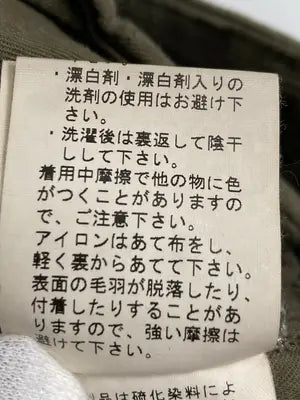 ・漂白剤・漂白剤入りの
洗剤の使用はお避け下
さい。
・洗濯後は裏返して陰干
しして下さい。
着用中摩擦で他の物に色
がつくことがありますの
で、ご注意下さい。
アイロンはあて布をし、
軽く裏からあてて下さい。
表面の毛羽が脱落したり、
付着したりすることがあ
りますので、強い摩擦は
避けて下さい。
製品は硫化染料によ